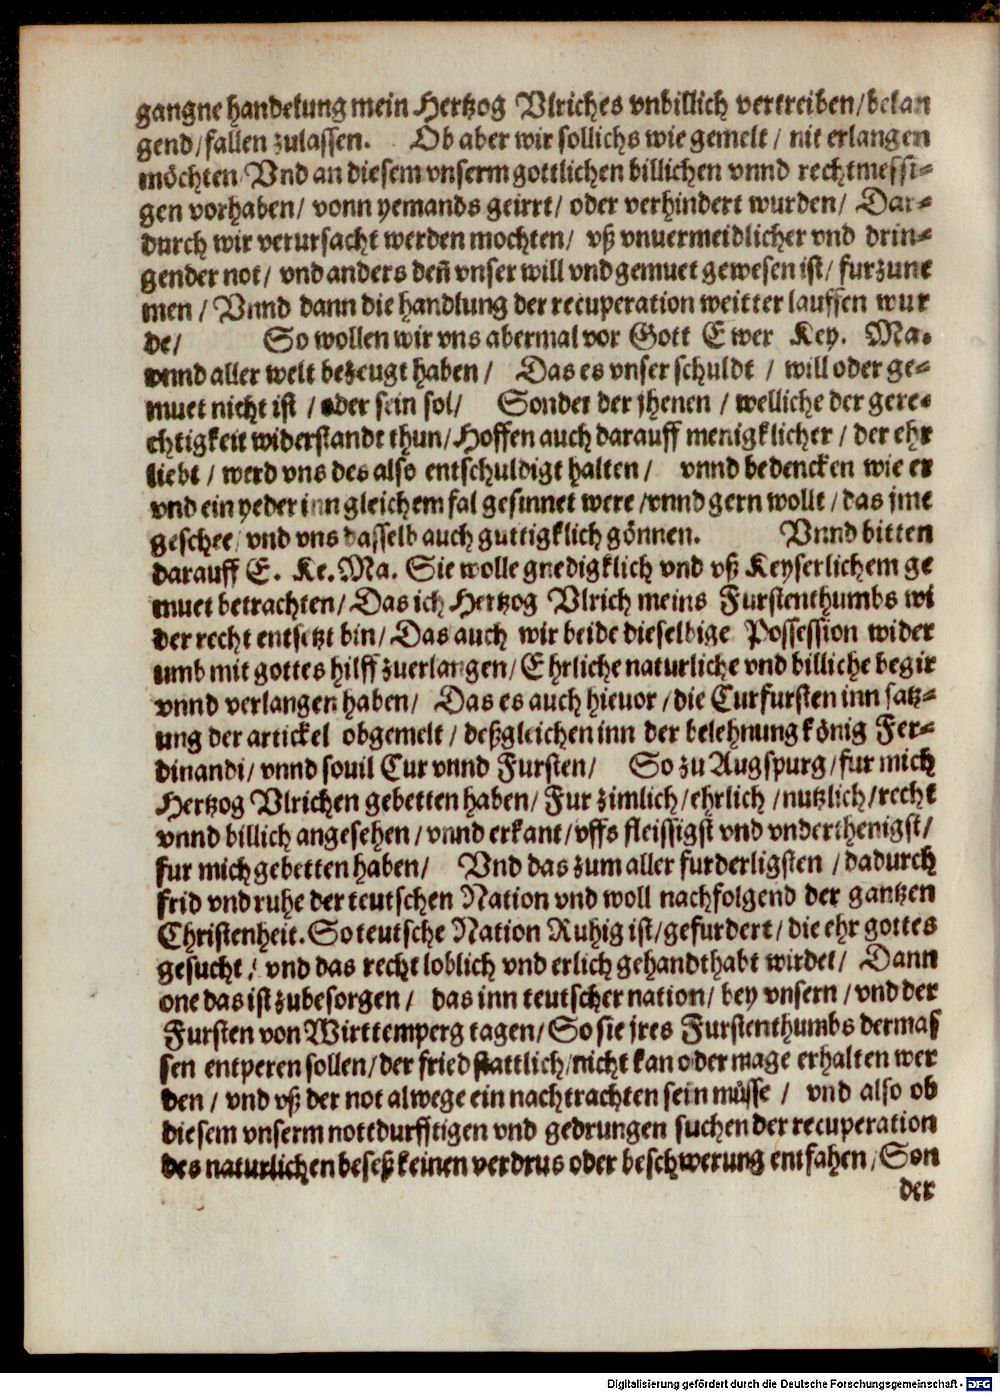 gangne handelung mein Hertzog Vlriches vnbillich vertreiben/belan
gend/fallen zulassen. Ob aber wir sollichs wie gemelt / nit erlangen
möchten Vnd an diesem vnserm gottlichen billichen vnnd rechtmessi-
gen vorhaben/ vonn yemands geirrt/ oder verhindert wurden/ Dar-
durch wir verursacht werden mochten/ vß vnuermeidlicher vnd drin-
gender not/ vnd anders deñ vnser will vnd gemuet gewesen ist/ furzune
men / Vnnd dann die handlung der recuperation weitter lauffen wur
de/ So wollen wir vns abermal vor Gott Ewer Key. Ma.
vnnd aller welt bezeugt haben / Das es vnser schuldt / will oder ge-
muet nicht ist / oder sein sol/ Sonder der jhenen / welliche der gere-
chtigkeit widerstandt thun/Hoffen auch darauff menigklicher / der ehr
liebt / werd vns des also entschuldigt halten / vnnd bedencken wie er
vnd ein yeder inn gleichem fal gesinnet were /vnnd gern wollt / das jme
geschee/ vnd vns dasselb auch guttigklich gönnen. Vnnd bitten
darauff E. Ke. Ma. Sie wolle gnedigklich vnd vß Keyserlichem ge
muet betrachten/ Das ich Hertzog Vlrich meins Furstenthumbs wi
der recht entsetzt bin/ Das auch wir beide dieselbige Possession wider
umb mit gottes hilff zuerlangen/ Ehrliche naturliche vnd billiche begir
vnnd verlangen haben/ Das es auch hieuor / die Curfursten inn satz-
ung der artickel obgemelt / deßgleichen inn der belehnung könig Fer-
dinandi/ vnnd souil Cur vnnd Fursten/ So zu Augspurg/fur mich
Hertzog Vlrichen gebetten haben/ Fur zimlich/ehrlich /nutzlich/recht
vnnd billich angesehen/vnnd erkant/vffs fleissigst vnd vnderthenigst/
fur mich gebetten haben/ Vnd das zum aller furderligsten /dadurch
frid vnd ruhe der teutschen Nation vnd woll nachfolgend der gantzen
Christenheit. So teutsche Nation Ruhig ist/gefurdert/ die ehr gottes
gesucht/ vnd das recht loblich vnd erlich gehandthabt wirdet/ Dann
one das ist zubesorgen/ das inn teutscher nation/ bey vnsern /vnd der
Fursten von Wirttemperg tagen/So sie jres Furstenthumbs dermas
sen entperen sollen/der fried stattlich/nicht kan oder mage erhalten wer
den / vnd vß der not alwege ein nachtrachten sein müsse / vnd also ob
diesem vnserm nottdurfftigen vnd gedrungen suchen der recuperation
des naturlichen beseß keinen verdrus oder beschwerung entfahen/Son
der
Digitalisierung gefördert durch die Deutsche Forschungsgemeinschaft - DFG